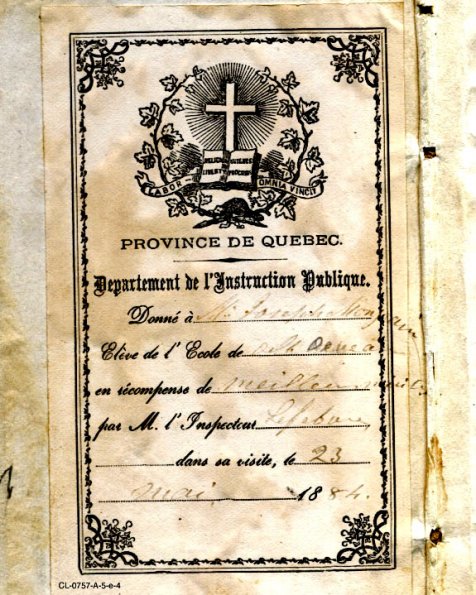 LABOR OMNIA VINCIT
PROVINCE DE QUEBEC.
Departement de l'Instruction Publique.
Donné à Mr Joseph
Elève de l'Ecole de
en récompense de meilleur
par M. l'Inspecteur Lefebvre
dans sa visite, le 23
mai 1884.
CL-0757-A-5-e-4